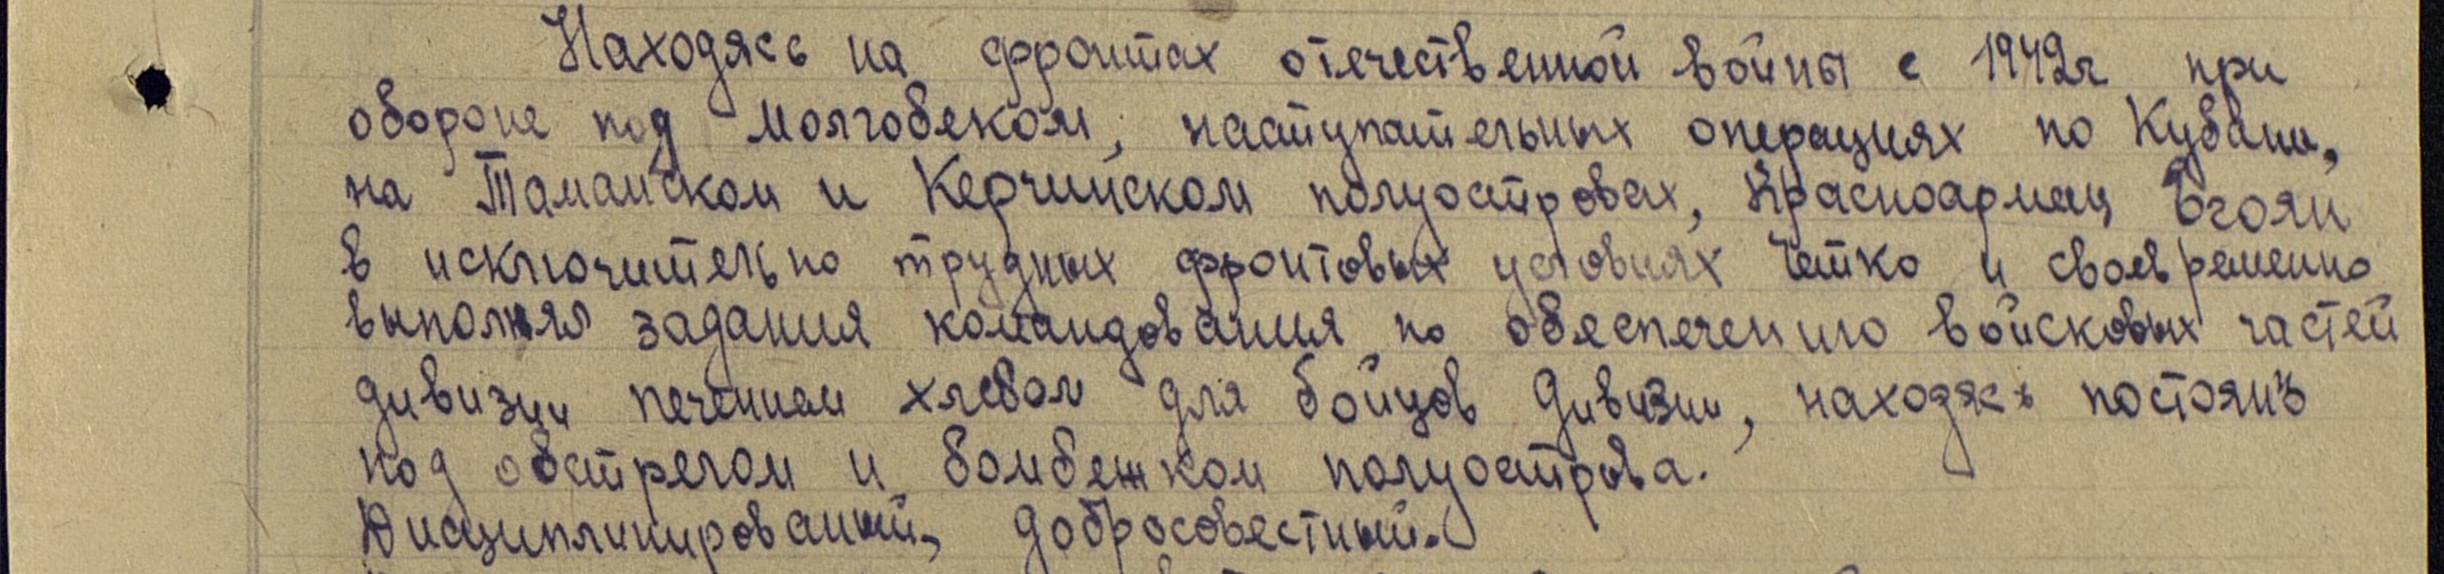 Находясь на фронтах отечественной войны с 1942г при
обороне под Молгобеком, наступательных операциях по Кубани,
на Таманском и Керчинском полуостровах, Красноармеец
в исключительно трудных фронтовых условиях четко и своевременно
выполнял задания командования по обеспечению войсковых частей
дивизии печением хлебом для бойцов дивизии, находясь постоянъ
под обстрелом и бомбежком полуострова.
Дисциплинированый, добросовестный.